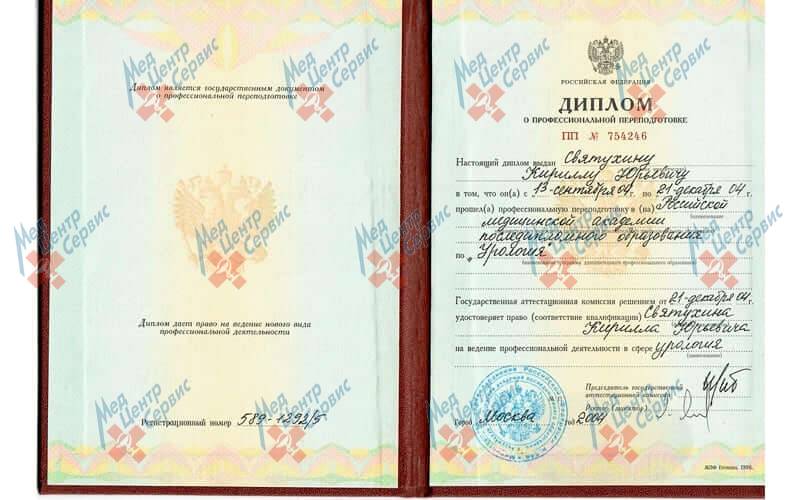 Диплом является государственным документом
о профессиональной переподготовке
Диплом дает право на ведение нового вида
профессиональной деятельности
Регистрационный номер 589-1292/5
РОССИЙСКАЯ ФЕДЕРАЦИЯ
ДИПЛОМ
О ПРОФЕССИОНАЛЬНОЙ ПЕРЕПОДГОТОВКЕ
ПП № 754246
Настоящий диплом выдан Святухину
Кириллу Юрьевичу
в том, что он(а) с 13 сентября 04 г. по 21 декабря 04 г.
прошел(а) профессиональную переподготовку в (на) Российской
медицинской академии
последипломного образования
по „Урология"
(наименование программы дополнительного профессионального образования)
Государственная аттестационная комиссия решением от 21 декабря 04 г.
удостоверяет право (соответствие квалификации) Святухина
Кирилла Юрьевича
на ведение профессиональной деятельности в сфере урология
(наименование)
Председатель государственной
аттестационной комиссии
Ректор (директор)
Город Москва год 2004
МедЦентрСервис